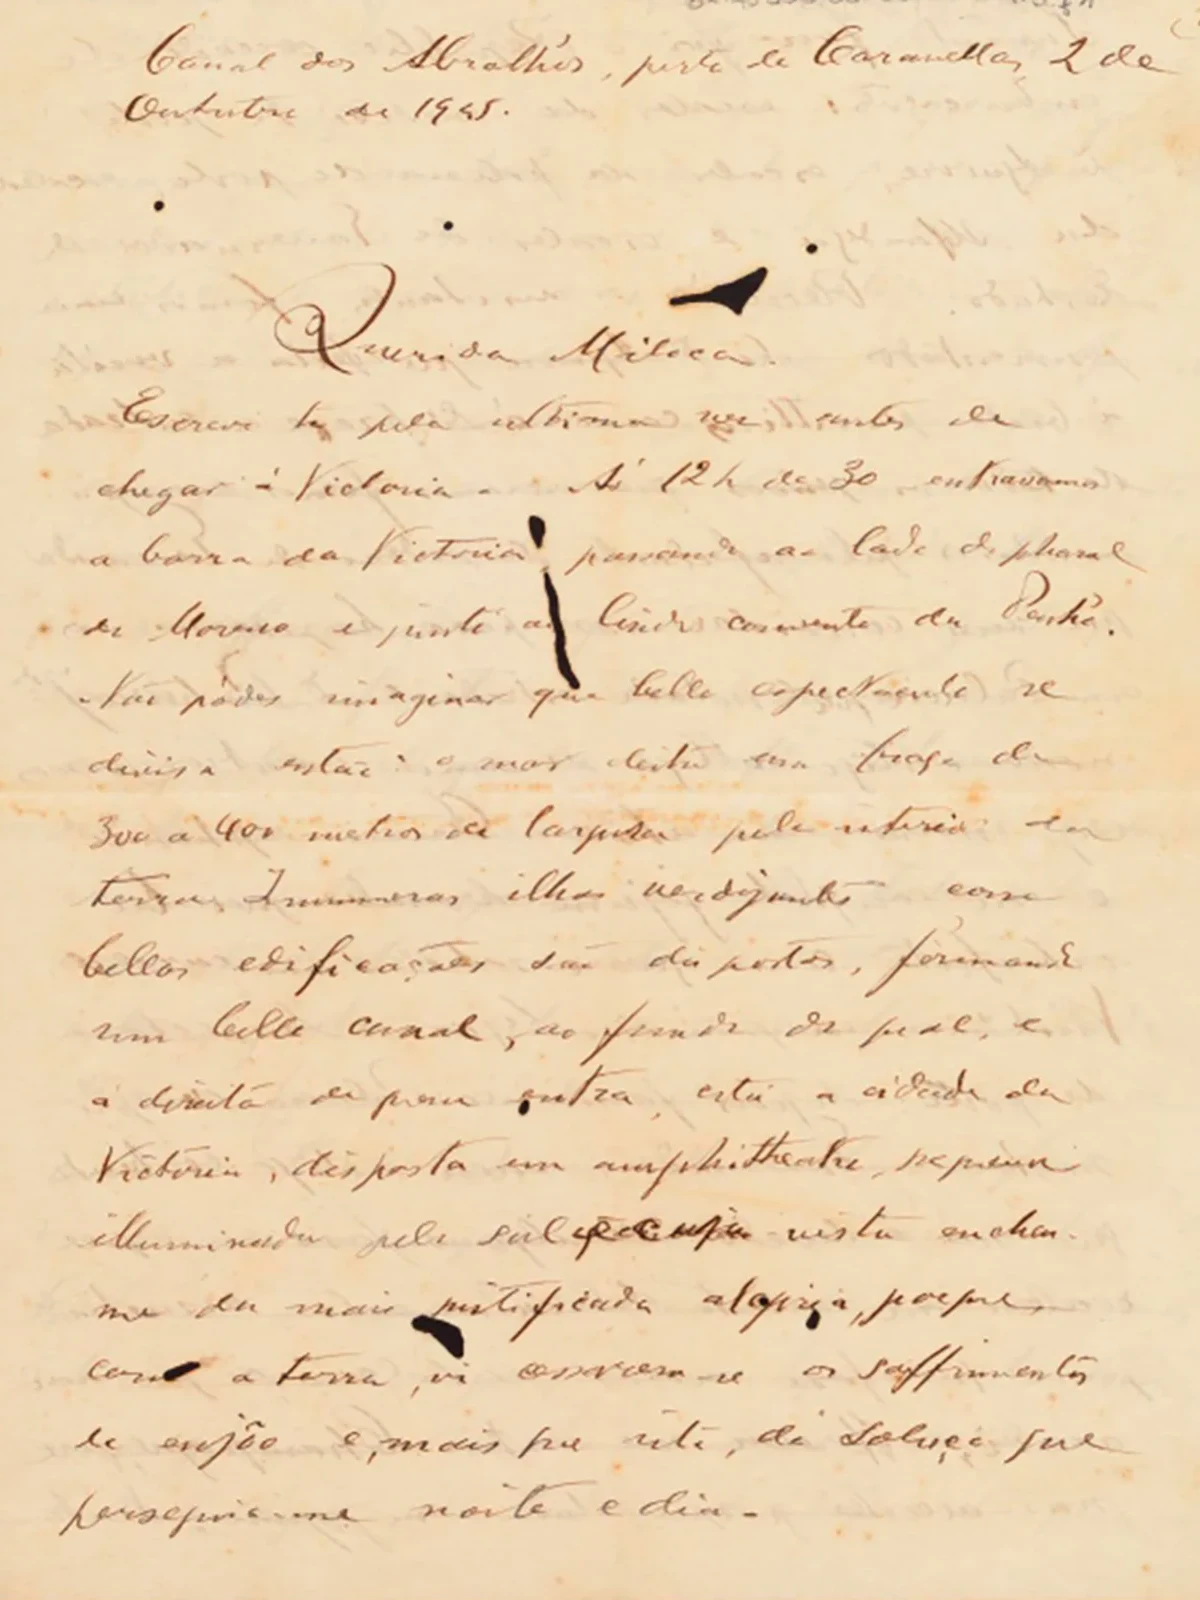 Canal dos Abrolhos, perto de Caravellas, 2 de
Outubro de 1905.
Querida Miloca.
Escrevi te pela ultima vez antes de
chegar á Victoria. Ás 12 h de 30 entravamos
a barra da Victoria passando ao lado do pharol
de Moreno e junto ao lindo convento da Penha.
Não pódes imaginar que bello espectaculo se
divisa então: o mar deita um braço de
300 a 400 metros de largura pelo interior da
terra. Innumeras ilhas verdejantes com
bellas edificações são dispostas, formando
um bello canal, ao fundo do qual, e
á direita de quem entra, está a cidade da
Victoria, disposta em amphitheatro, pequena
illuminada pelo sol e cuja vista encheu-
me da mais justificada alegria, porque,
com a terra, vi cessarem-se os soffrimentos
de enjôo e, mais que isto, do soluço que
perseguia-me noite e dia.